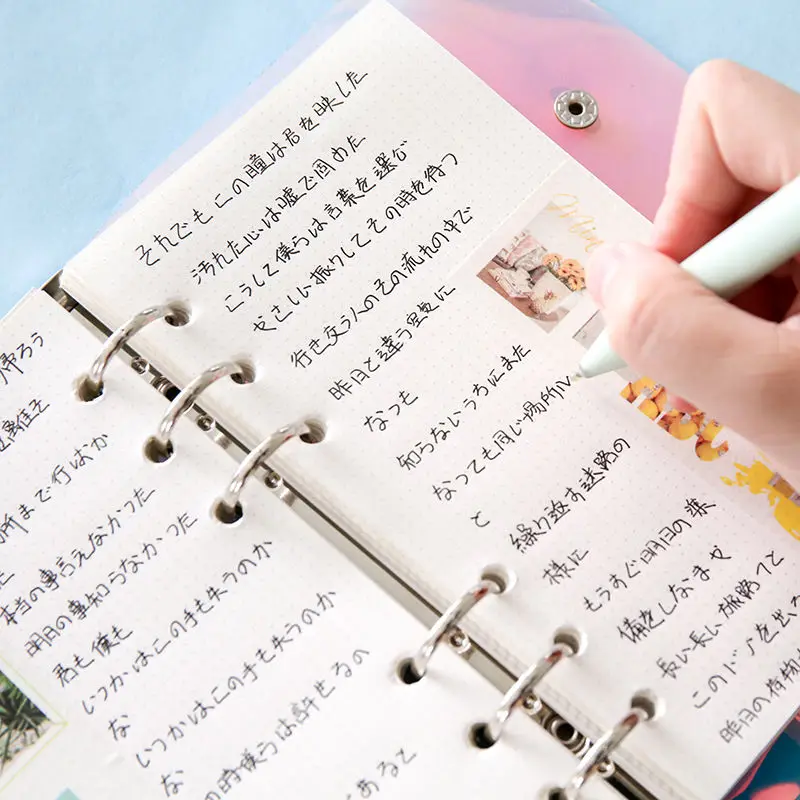 帰ろう
所まで行ばか
本当の事言えなかつた
明日の事知らなかつた
君も僕も
いつかはこの手も失うのか
な
いつかはこの手も失うのか
な
の時僕らは許せるの
あると
それでもこの瞳は君を映した
汚れた心は嘘で固めた
こうして僕らは言葉を選ぶ
やさしい振りしてその時を待つ
行き交う人のその流れの中で
昨日と違う空気に
なつも
知らないうちにまた
なっても同じ場所に
と
繰り返す迷路の
様に
もうすぐ明日の準
備をしなませ
長い長い旅路つて
このドアを出る
昨日の荷物